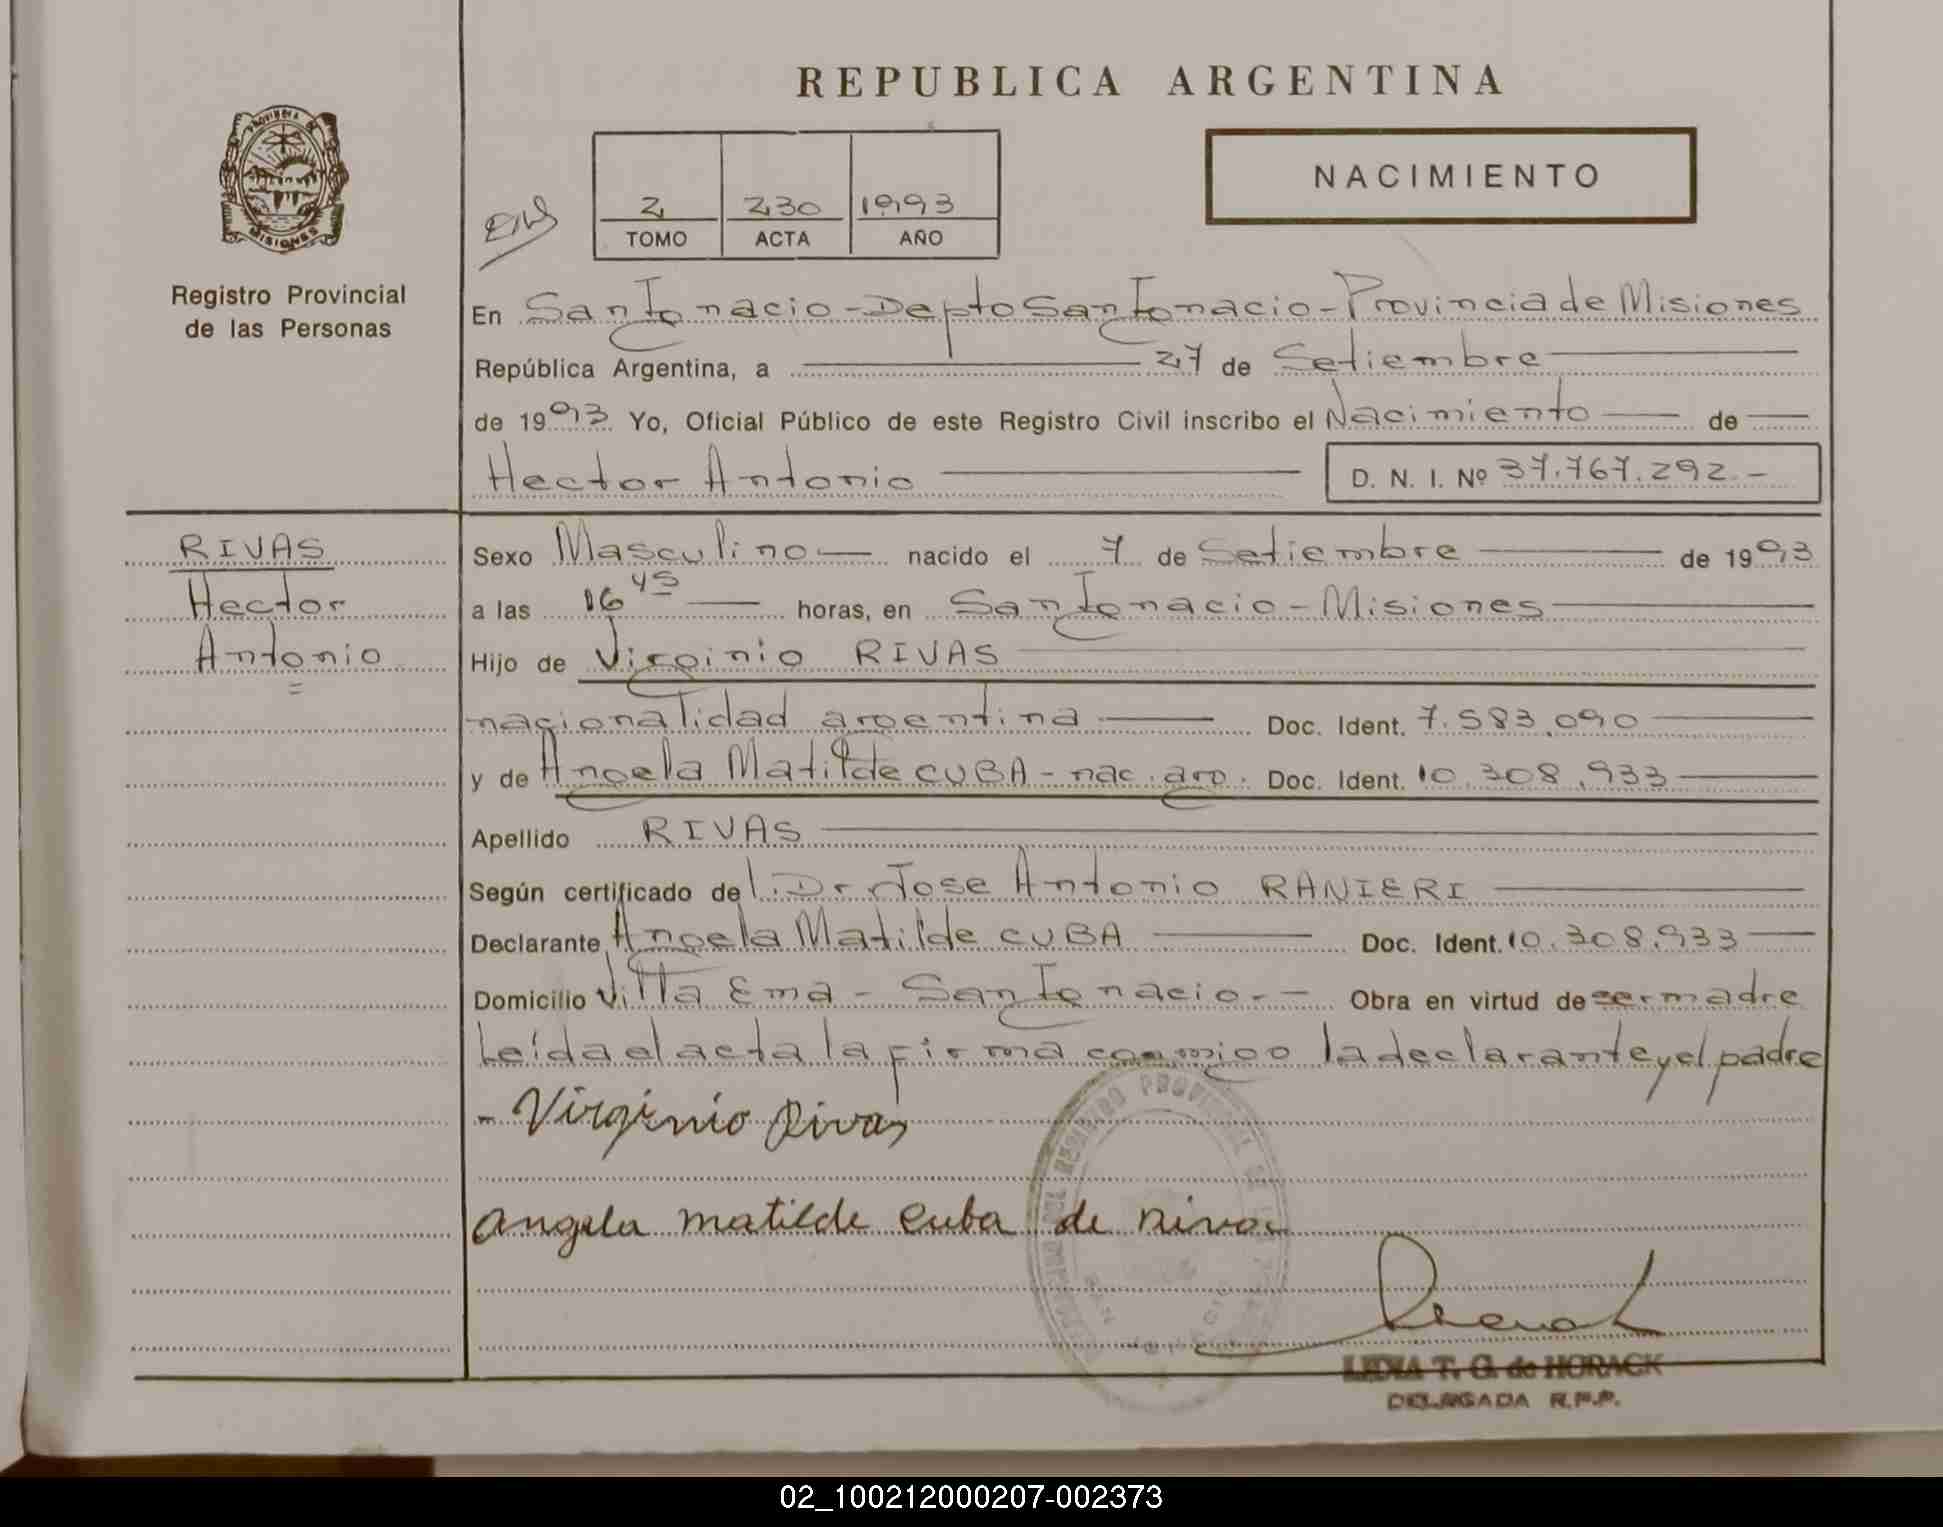 REPUBLICA ARGENTINA
PROVINCIA DE
MISIONES
Registro Provincial
de las Personas
2 230 1993
TOMO ACTA AÑO
NACIMIENTO
En San Ignacio - Depto San Ignacio - Provincia de Misiones
República Argentina, a 27 de Setiembre
de 1993 Yo, Oficial Público de este Registro Civil inscribo el Nacimiento de
Hector Antonio D. N. I. Nº 37.767.292.-
RIVAS
Hector
Antonio
Sexo Masculino nacido el 7 de Setiembre de 1993
a las 16 45 horas, en San Ignacio - Misiones
Hijo de Virginio RIVAS
nacionalidad argentina Doc. Ident. 7.583.090
y de Angela Matilde CUBA - nac. arg. Doc. Ident. 10.308.933
Apellido RIVAS
Según certificado del Dr. Jose Antonio RANIERI
Declarante Angela Matilde CUBA Doc. Ident. 10.308.933
Domicilio Villa Ema - San Ignacio.- Obra en virtud de ser madre
Leída el acta la firma conmigo la declarante y el padre
- Virginio Rivas
Angela Matilde Cuba de Rivas
LIDIA T. G. de HORACK
DELEGADA R.P.P.
02_100212000207-002373